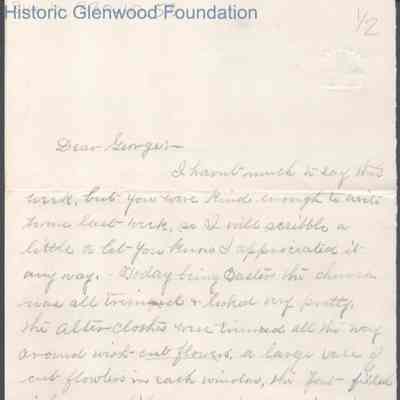 Historic Glenwood Foundation
1/2
Dear George:-
I havn't much to say this
week, but you were kind enough to write
home last week, so I will scribble a
little to let you know I appreciated it
any way. - Today being Easter the church
was all trimmed & looked very pretty,
the Alter Clothes were trimmed all the way
around with cut flowers, a large vase of
cut flowers in each window, the Font filled